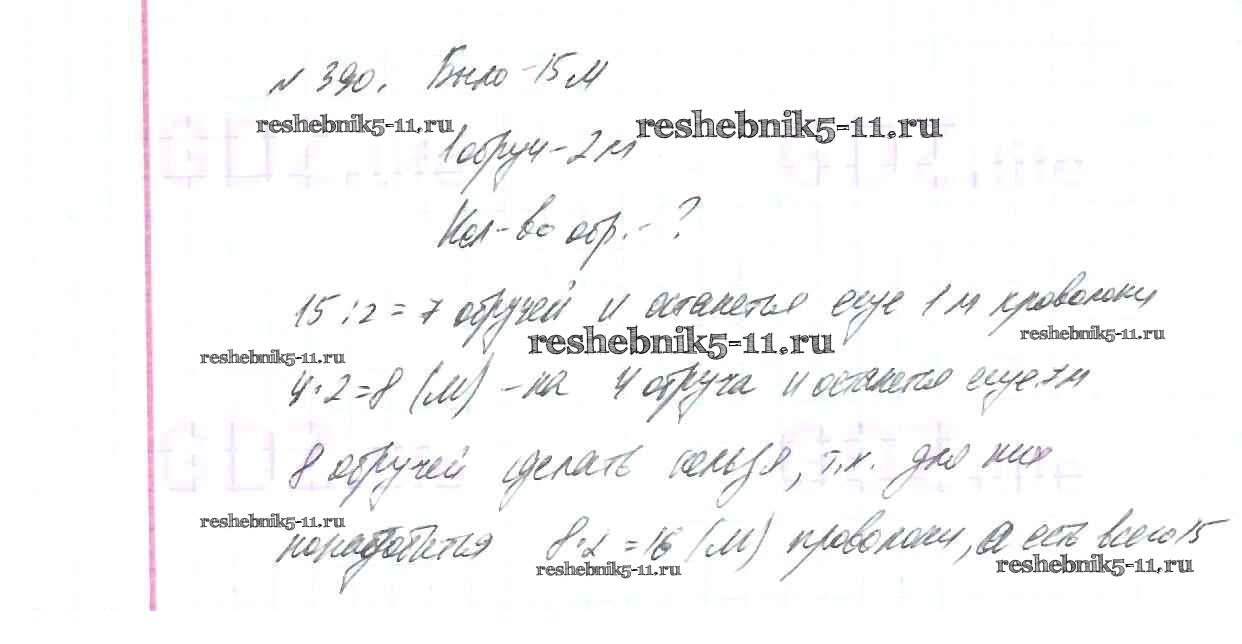 № 390. Было - 15 м
reshebnik5-11.ru reshebnik5-11.ru
1 обруч - 2 м
Кол-во обр. - ?
15 : 2 = 7 обручей и останется еще 1 м проволоки
reshebnik5-11.ru reshebnik5-11.ru reshebnik5-11.ru
4 · 2 = 8 (м) - на 4 обруча и останется еще 7 м
8 обручей сделать нельзя, т.к. для них
reshebnik5-11.ru
понадобится 8·2 = 16 (м) проволоки, а есть всего 15
reshebnik5-11.ru reshebnik5-11.ru